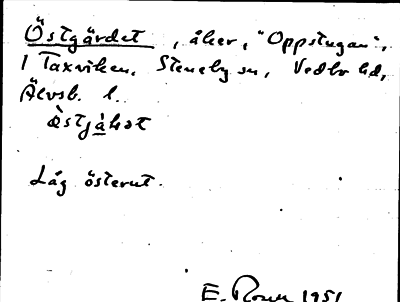 Östgärdet, åker, "Oppstugan",
1 Taxviken, Steneby sn, Vedbo hd,
Älvsb. l.
Låg österut.
E. 1951